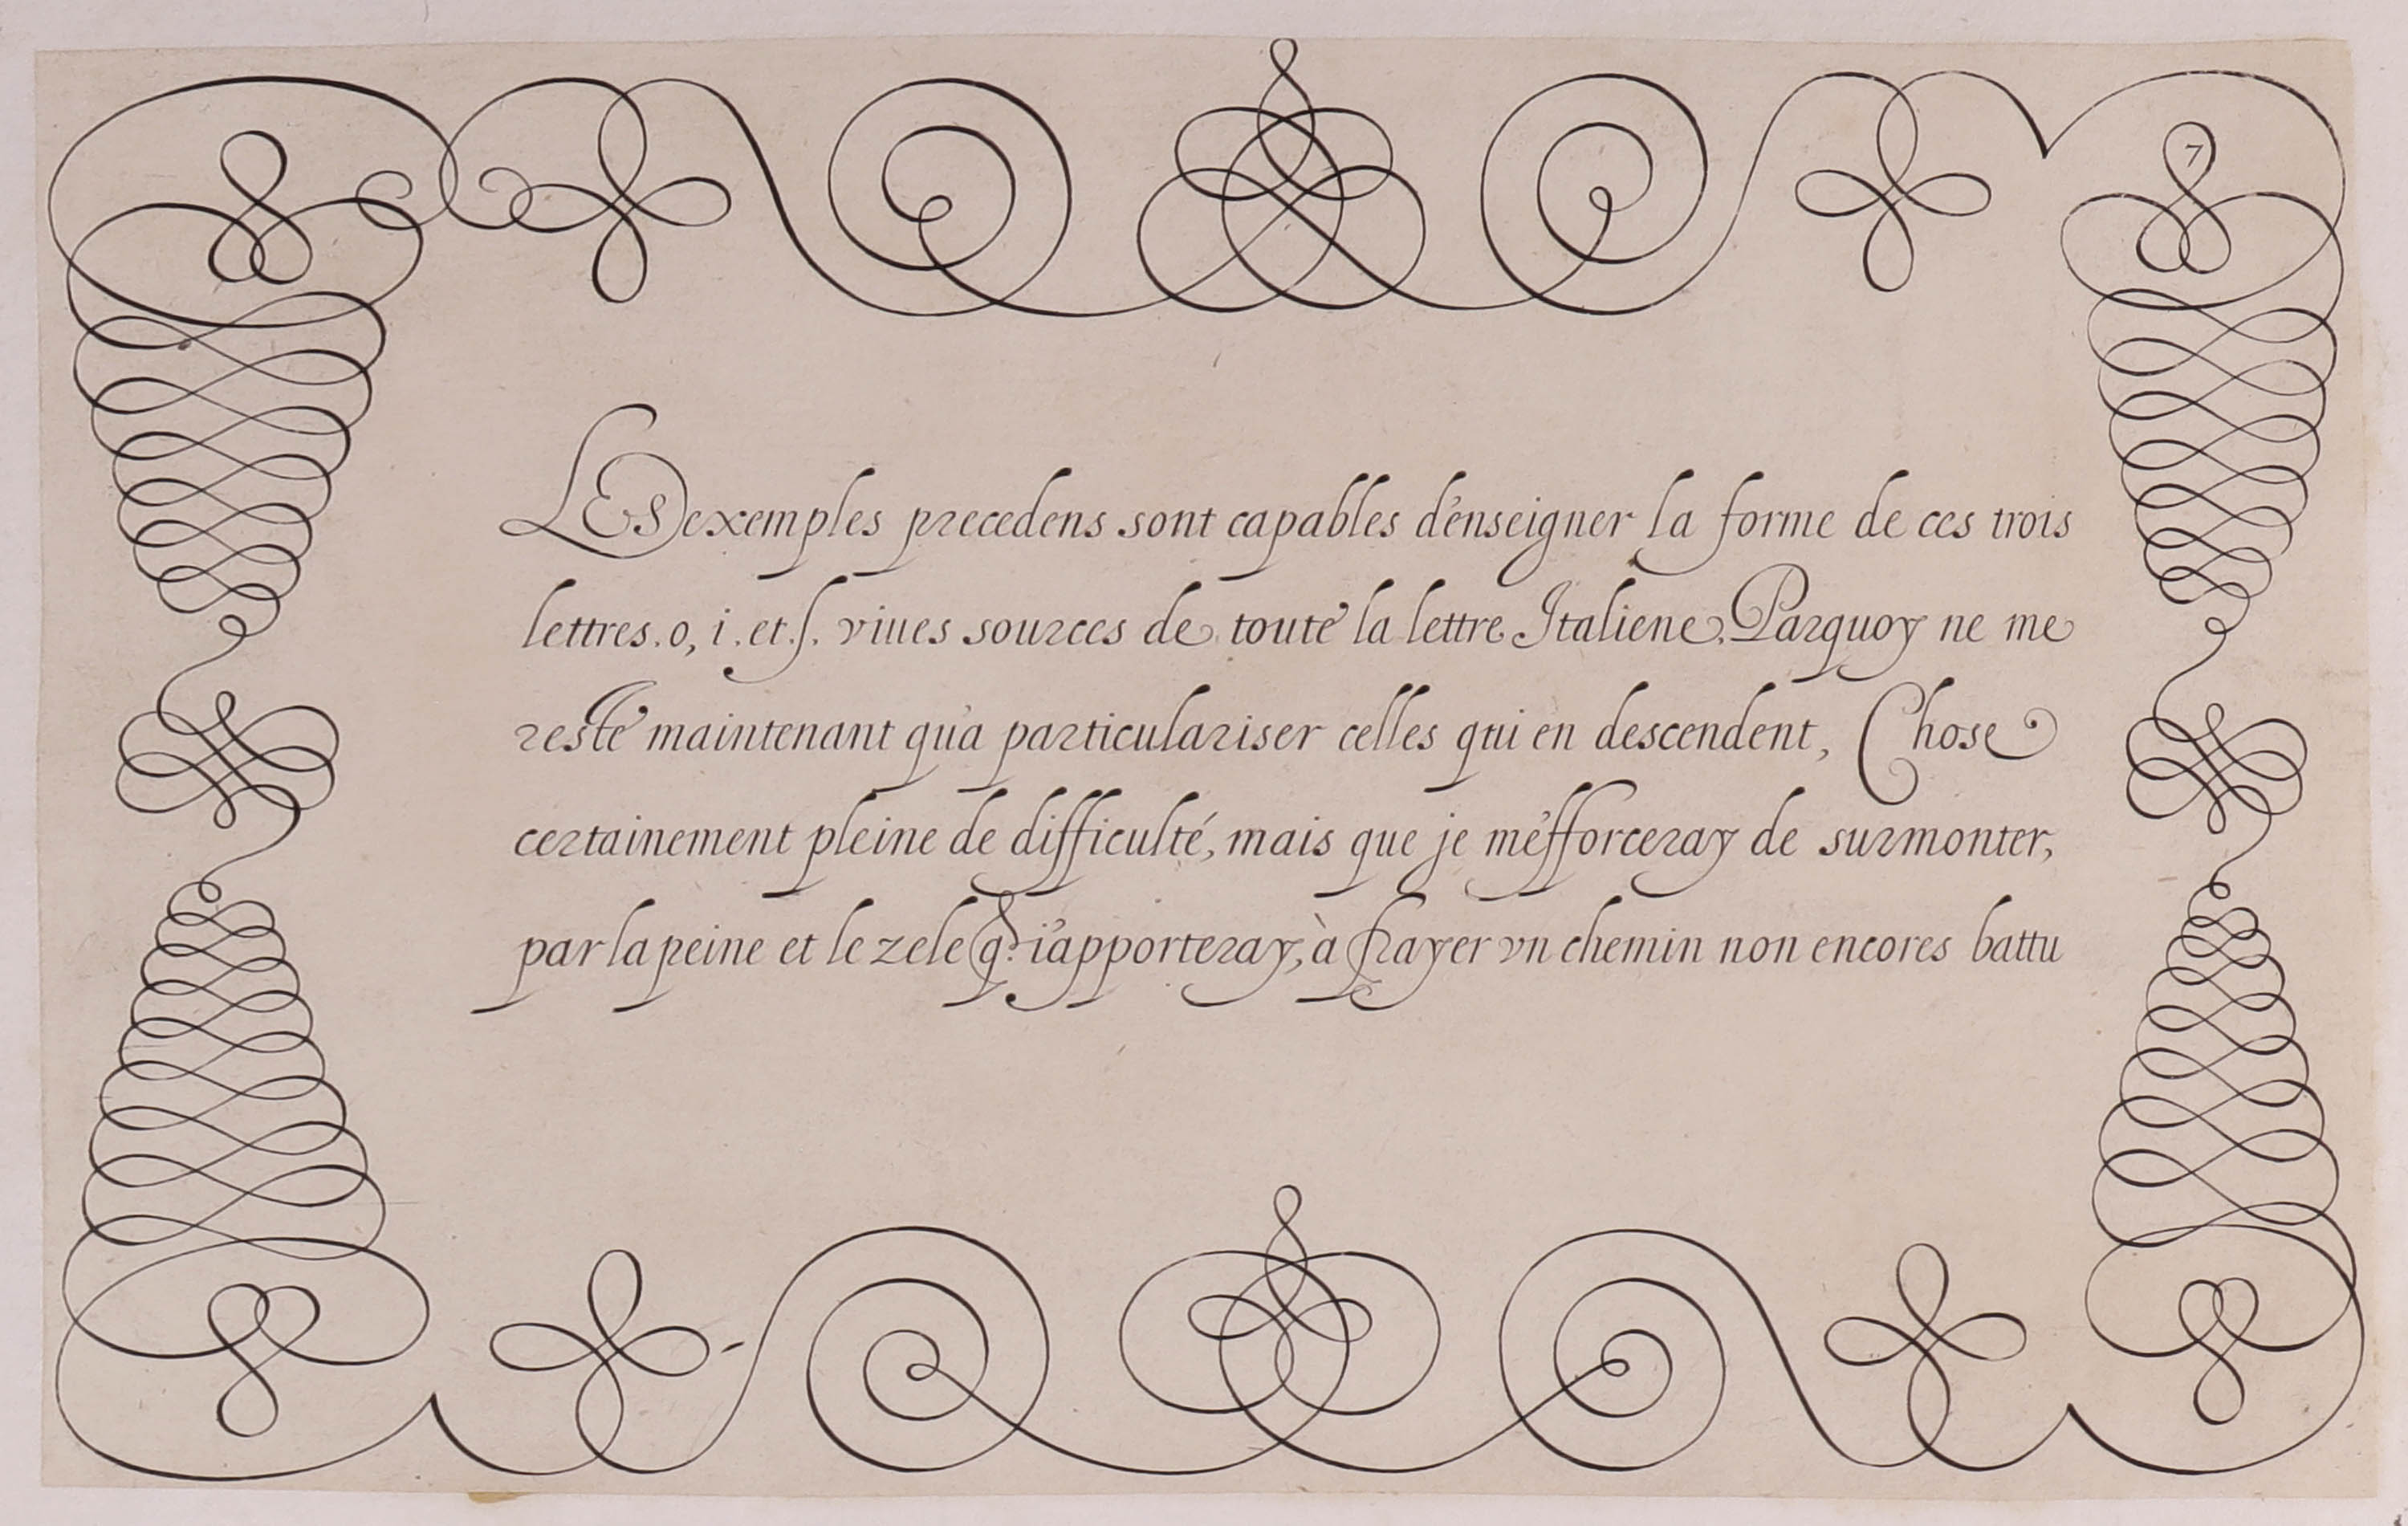 7
LES exemples precedens sont capables d'enseigner la forme de ces trois
lettres. o, i. et. ſ. viues sources de toute la lettre Italiene. Parquoy ne me
reste maintenant qu'a particulariser celles qui en descendent, Chose
certainement pleine de difficulté, mais que je m'efforceray de surmonter,
par la peine et le zele q. i'apporteray, à frayer vn chemin non encores battu